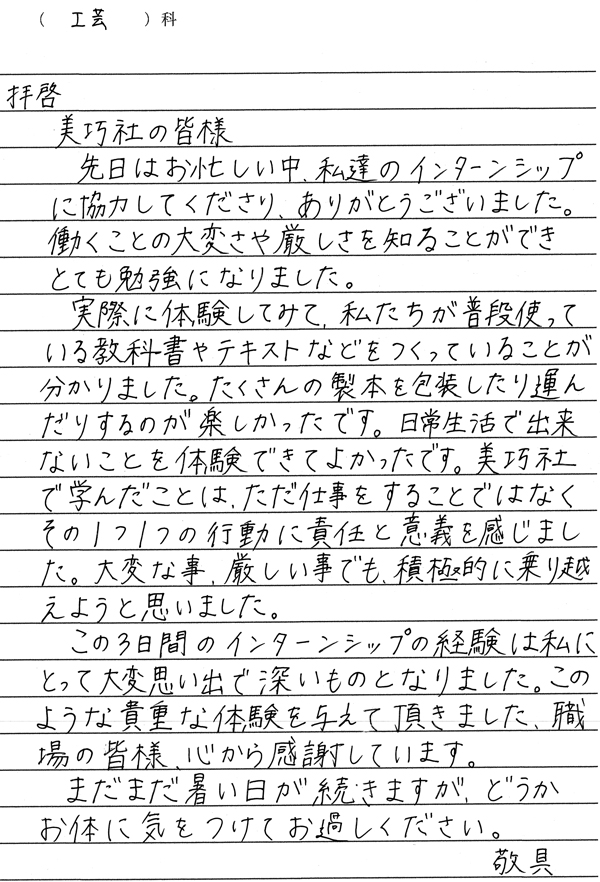 （　工芸　）科
拝啓
美巧社の皆様
先日はお忙しい中、私達のインターンシップ
に協力してくださり、ありがとうございました。
働くことの大変さや厳しさを知ることができ
とても勉強になりました。
実際に体験してみて、私たちが普段使って
いる教科書やテキストなどをつくっていることが
分かりました。たくさんの製本を包装したり運ん
だりするのが楽しかったです。日常生活で出来
ないことを体験できてよかったです。美巧社
で学んだことは、ただ仕事をすることではなく
その1つ1つの行動に責任と意義を感じまし
た。大変な事、厳しい事でも、積極的に乗り越
えようと思いました。
この3日間のインターンシップの経験は私に
とって大変思い出で深いものとなりました。この
ような貴重な体験を与えて頂きました、職
場の皆様、心から感謝しています。
まだまだ暑い日が続きますが、どうか
お体に気をつけてお過しください。
敬具